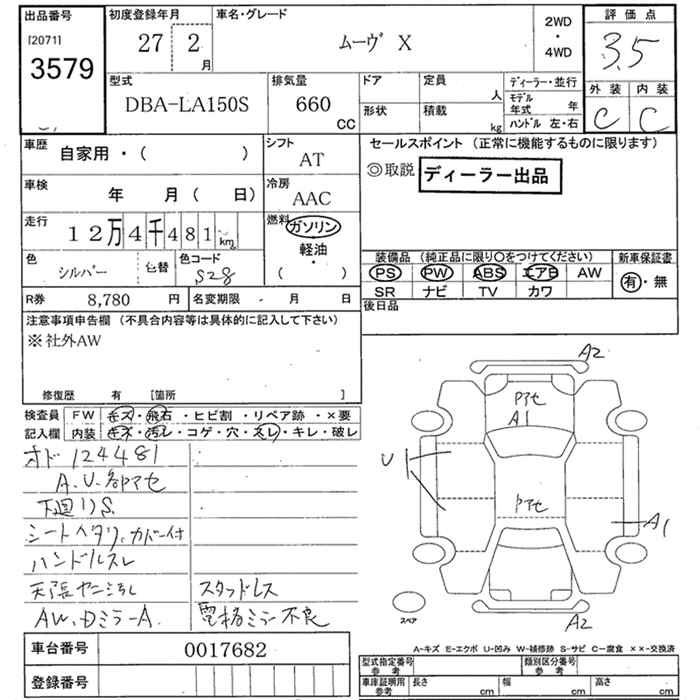 出品番号
[2071]
3579
初度登録年月
27 2 月
車名・グレード
ムーヴ X
2WD
・
4WD
評価点
3.5
外装 内装
C C
型式
DBA-LA150S
排気量
660
CC
ドア
形状
定員
人
積載
kg
ディーラー・並行
モデル年式 年
ハンドル 左・右
車歴
自家用・( )
シフト
AT
車検
年 月( 日)
冷房
AAC
走行
12万4千481 km
燃料
ガソリン
軽油
・
( )
色
シルバー
色替
色コード
S28
R券 8,780 円
名変期限 ・ 月 日
セールスポイント (正常に機能するものに限ります)
◎取説 ディーラー出品
装備品 (純正品に限り○をつけてください)
PS PW ABS エアB AW
SR ナビ TV カワ
新車保証書
有・無
後日品
注意事項申告欄 (不具合内容等は具体的に記入して下さい)
※社外AW
修復歴 有 [箇所 ]
検査員
記入欄
FW キズ・飛石・ヒビ割・リペア跡・×要
内装 キズ・汚レ・コゲ・穴・スレ・キレ・破レ
オド 124481
A.U.部アセ
下廻りS
シートヘタリ、カバー付
ハンドルスレ
天張ヤニ汚レ
スタッドレス
AW.DミラーA.
電格ミラー不良
A2
Pアセ
A1
U
Pアセ
A1
A2
スペア
車台番号 0017682
登録番号
A-キズ E-エクボ U-凹み W-補修跡 S-サビ C-腐食 ××-交換済
型式指定番号
参考
類別区分番号
参考
車庫証明用
参考
長さ cm
幅 cm
高さ cm